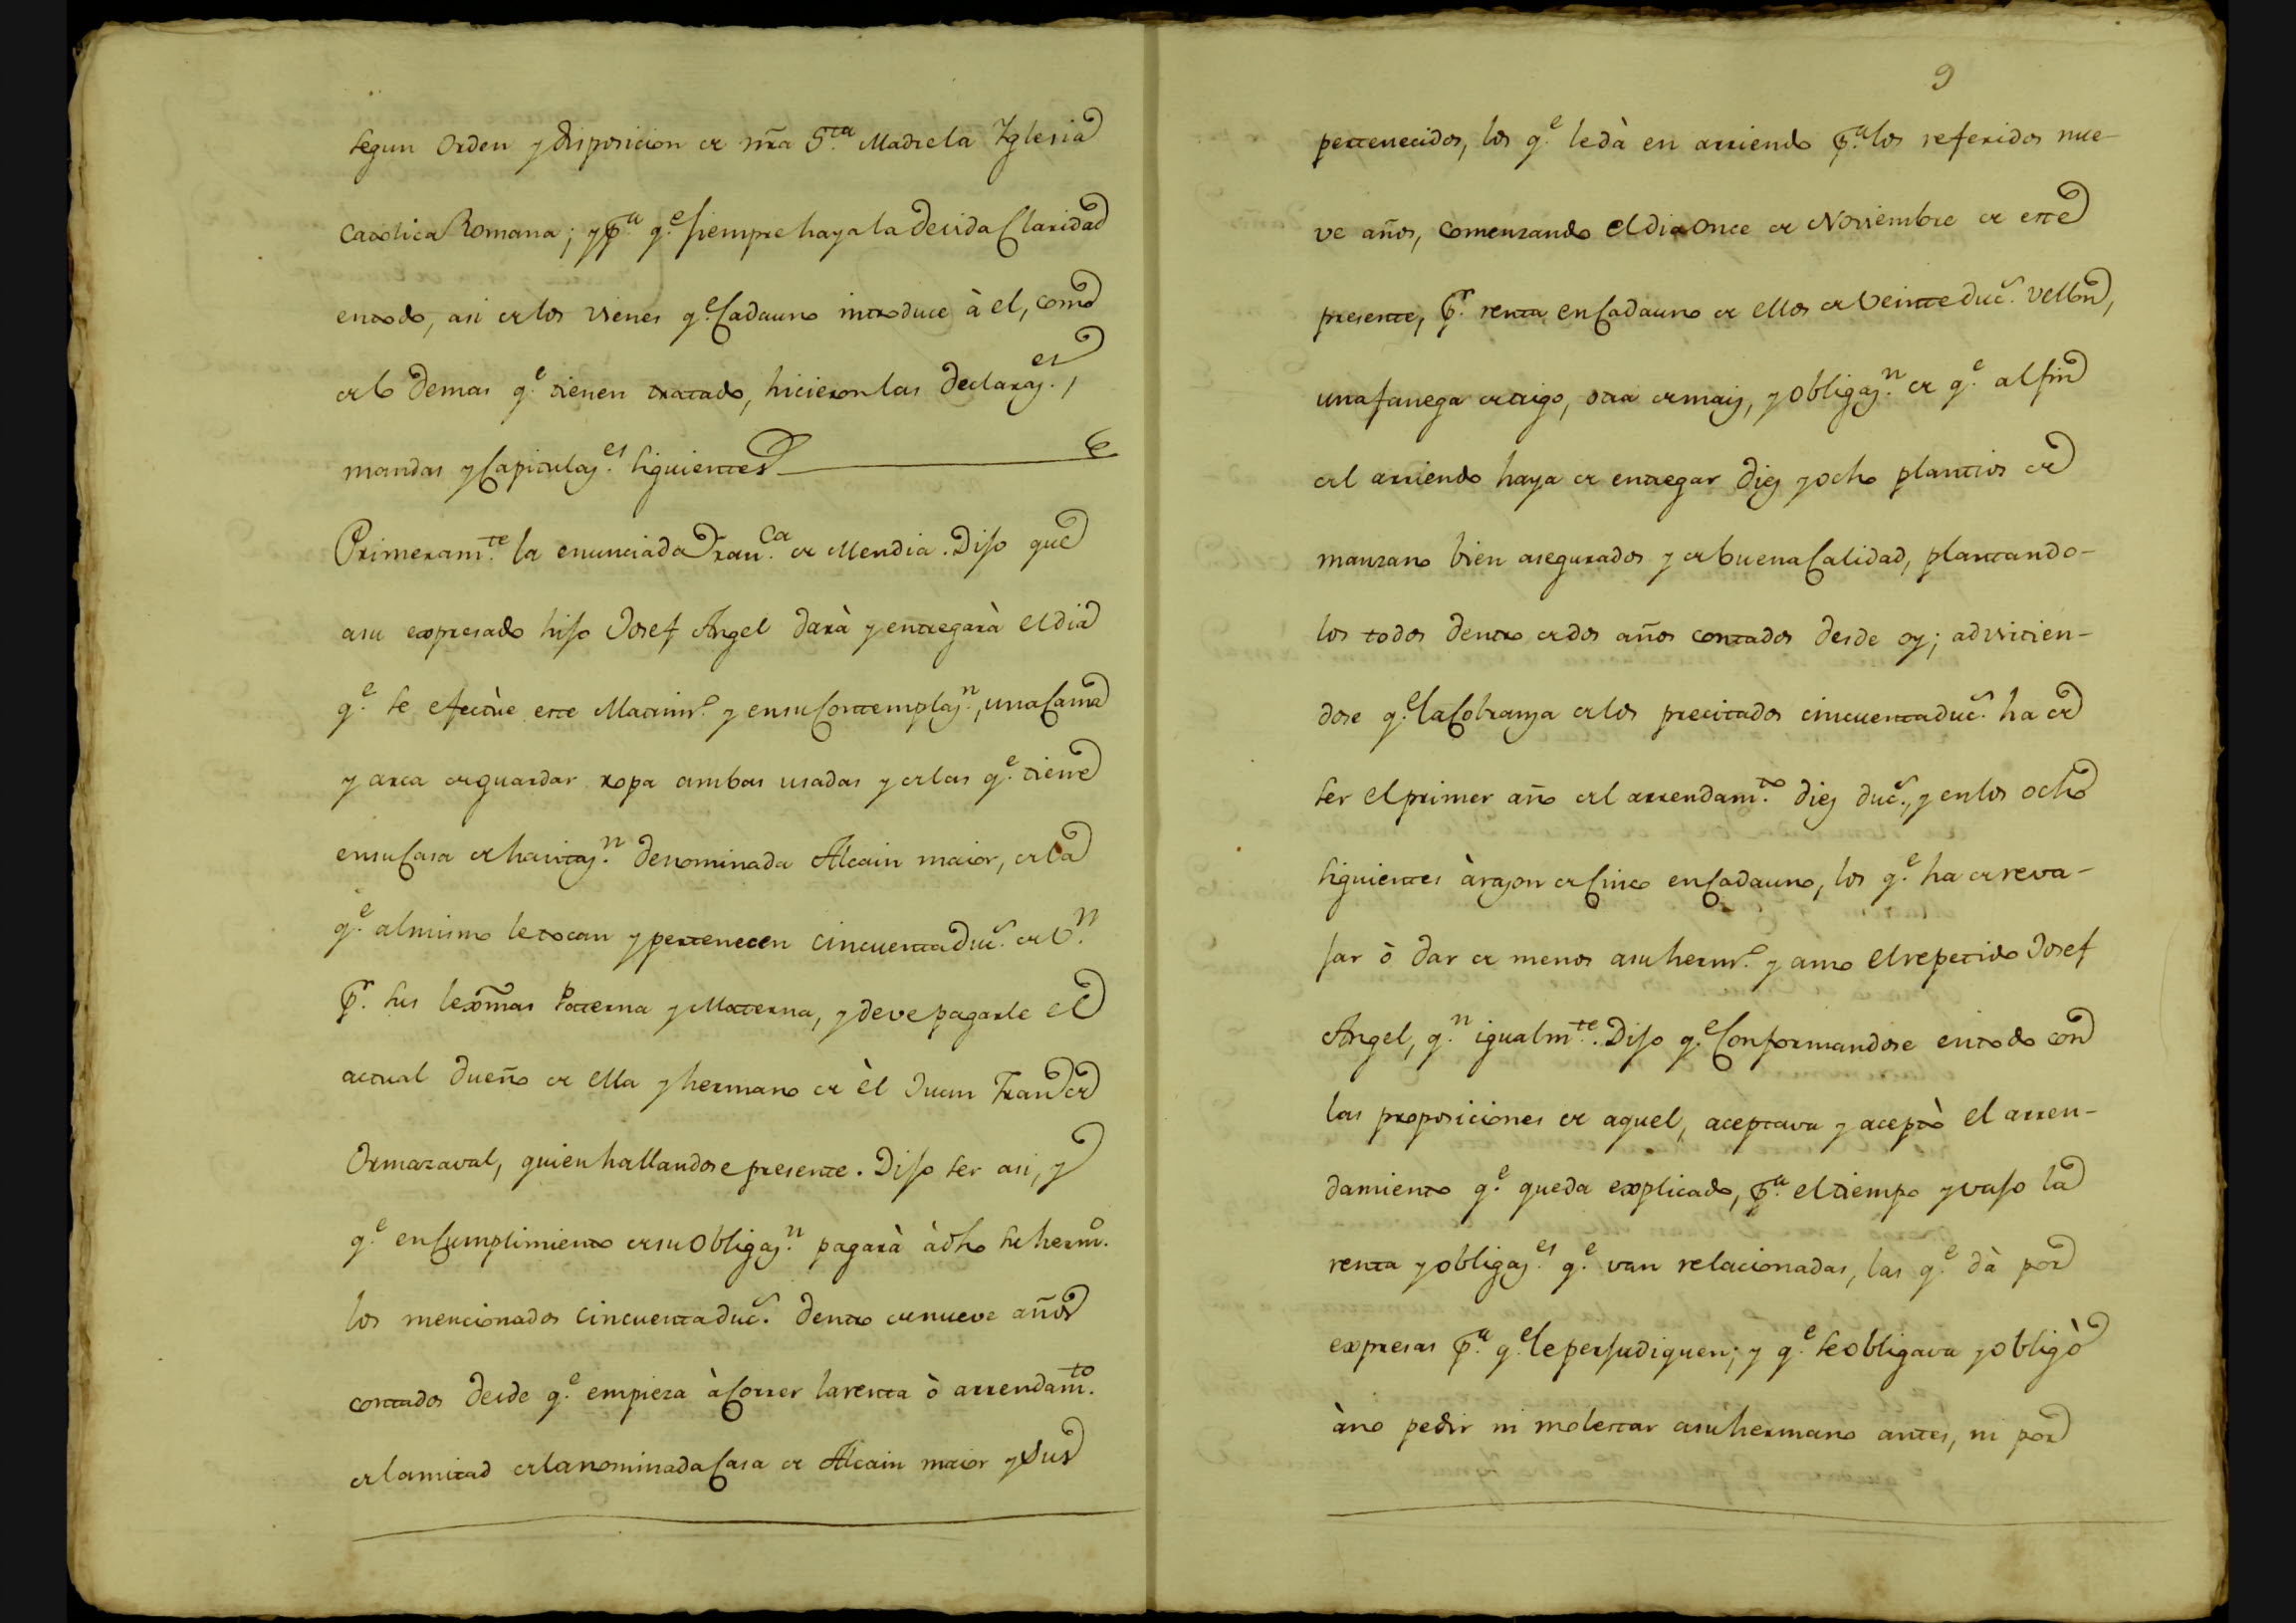 segun orden y disposicion de nr̃a S.ta Madre la Yglesia
catolica Romana; y p.a q.e siempre haya la devida Claridad
entodo, asi de los vienes q.e Cadauno introduce à el, como
de lo demas q.e tienen tratado, hicieron las declaraz.es,
mandas y Capitulaz.es siguientes
Primeram.te la enunciada Fran.ca de Mendia. Dijo que
asu expresado hijo Josef Angel darà y entregarà eldia
q.e se efectùe este Matrim.o y ensu Contemplaz.n, una Cama
y arca de guardar ropa ambas usadas y de las q.e tiene
ensu Casa de havitaz.n denominada Alcain maior, de la
q.e almismo letocan y pertenecen cincuenta duc.s de V.n
p.r sus lexmas Paterna y Materna, y deve pagarle el
actual dueño de ella y hermano de èl Juan Fran.co de
Ormazaval, quien hallandose presente. Dijo ser asi, y
q.e en Cumplimiento de su Obligaz.n pagarà à dho su herm.o
los mencionados cincuenta duc.s dentro de nueve años
contados desde q.e empieza à Correr larenta ò arrendam.to
de lamitad de lanominada Casa de Alcain maior y sus
9
pertenecidos, los q.e ledà en arriendo p.a los referidos nue-
ve años, comenzando eldia once de Noviembre de este
presente, p.r renta en Cadauno de ellos de Veinte duc.s vellon,
una fanega de trigo, otra de maiz, y obligaz.n de q.e al fin
del arriendo haya de entregar diez y ocho plantios de
manzano bien asegurados y de buena Calidad, plantando-
los todos dentro de dos años contados desde oy; advirtien-
dose q.e la Cobranza de los precitados cincuenta duc.s ha de
ser elprimer año del arrendam.to diez duc.s, y enlos ocho
siguientes àrazon de Cinco en Cadauno, los q.e ha de reva-
jar ò dar de menos asu herm.o y amo elrepetido Josef
Angel, q.n igualm.te. Dijo q.e Conformandose entodo con
las proposiciones de aquel, aceptava y aceptò el arren-
damiento q.e queda explicado, p.a eltiempo y vajo la
renta y obligaz.es q.e van relacionadas, las q.e dà por
expresas p.a q.e le perjudiquen; y q.e se obligava y obligò
àno pedir ni molestar asuhermano antes, ni por